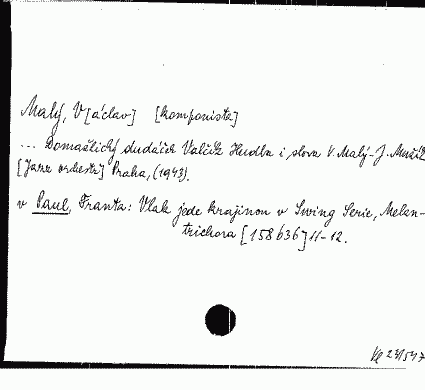 Malý, V[áclav] [komponista]
... Domažlický dudáček Valčík Hudba i slova V. Malý - J.
[Jazz orchestr] Praha, (1943).
v Paul, Franta: Vlak jede krajinou v Swing Serie, Melan-
trichova [158636] 11-12.